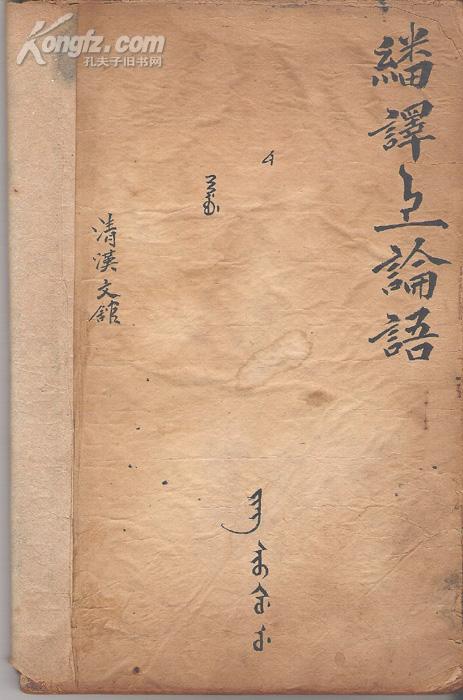 Kongfz.com
孔夫子旧书网
繙譯上論語
清漢文舘